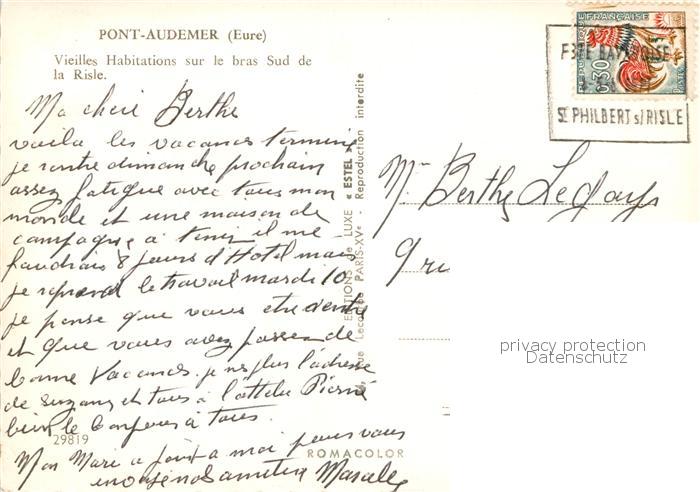 PONT-AUDEMER (Eure)
Vieilles Habitations sur le bras Sud de
la Risle.
Ma cheri Berthe
voila les vacances terminé
je rentre dimanche prochain
assez fatigue avec tous mon
monde et une maison de
campagne a tenir il me
faudrais 8 jours d'Hotel mais
je reprend le travail mardi 10
je pense que vous etre
et que vous avez passer de
bonne Vacances. je nes plus l'adresse
de suzanne et tous a
bien le bonjour à tous
29819
Mon Mari a joint a moi pour vous
Marcelle
ROMACOLOR
EDITIONS de LUXE « ESTEL »
PARIS-XVe - Reproduction interdite
REPUBLIQUE FRANÇAISE
0,30
POSTES
St PHILBERT s/RISLE
Mme Berthe Legoups
privacy protection
Datenschutz